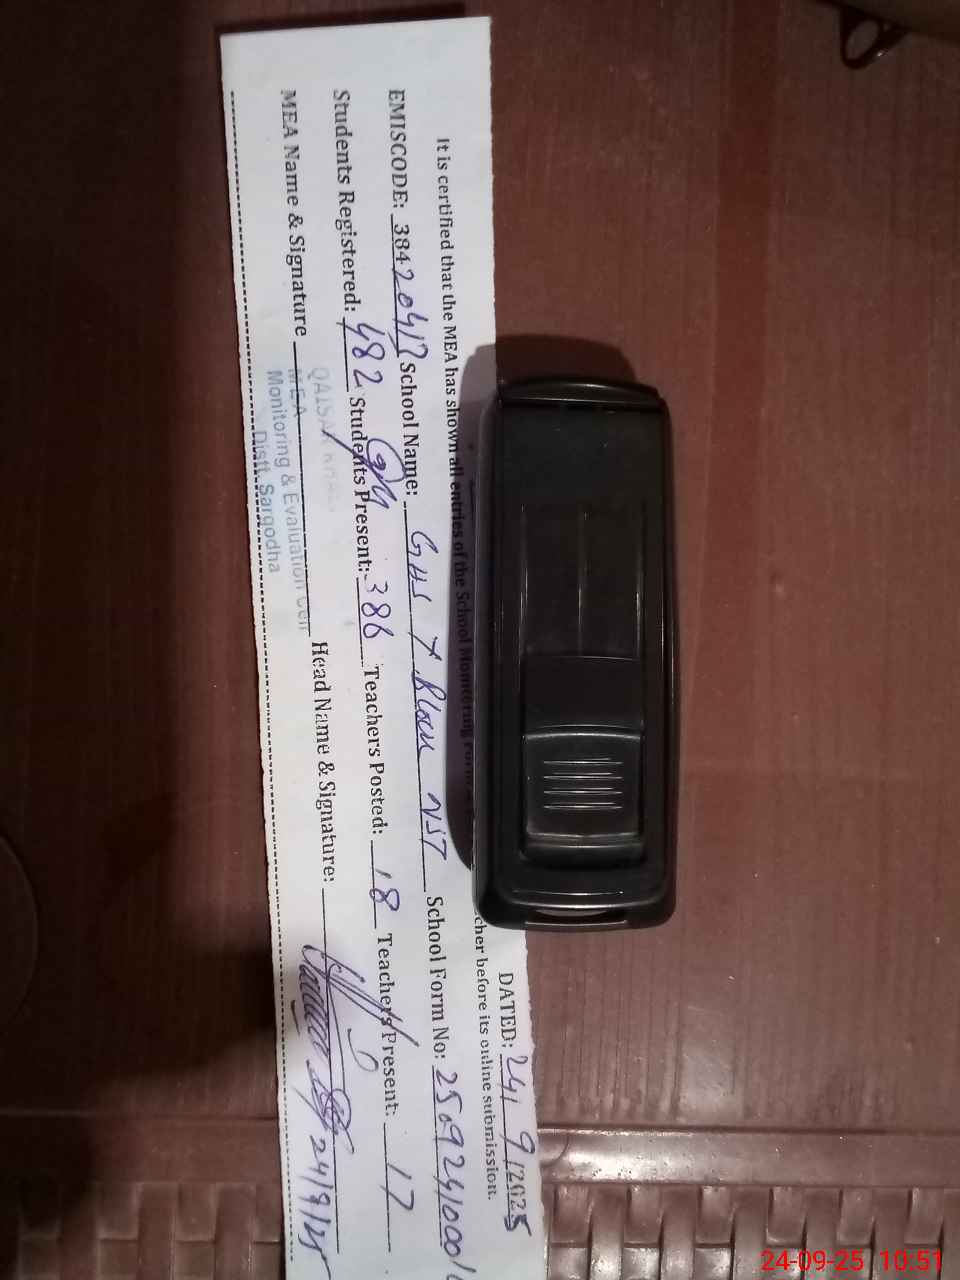 DATED: 24/9/2025
It is certified that the MEA has shown all entries of the School Monitoring cher before its online submission.
EMISCODE: 38420417 School Name: GHS Y Block NST School Form No: 2509241000
Students Registered: 482 Students Present: 386 Teachers Posted: 18 Teachers Present: 17
MEA Name & Signature Head Name & Signature: 24/9/25
QAISAR
M.E.A
Monitoring & Evaluation Cell
Distt. Sargodha
24-09-25 10:51